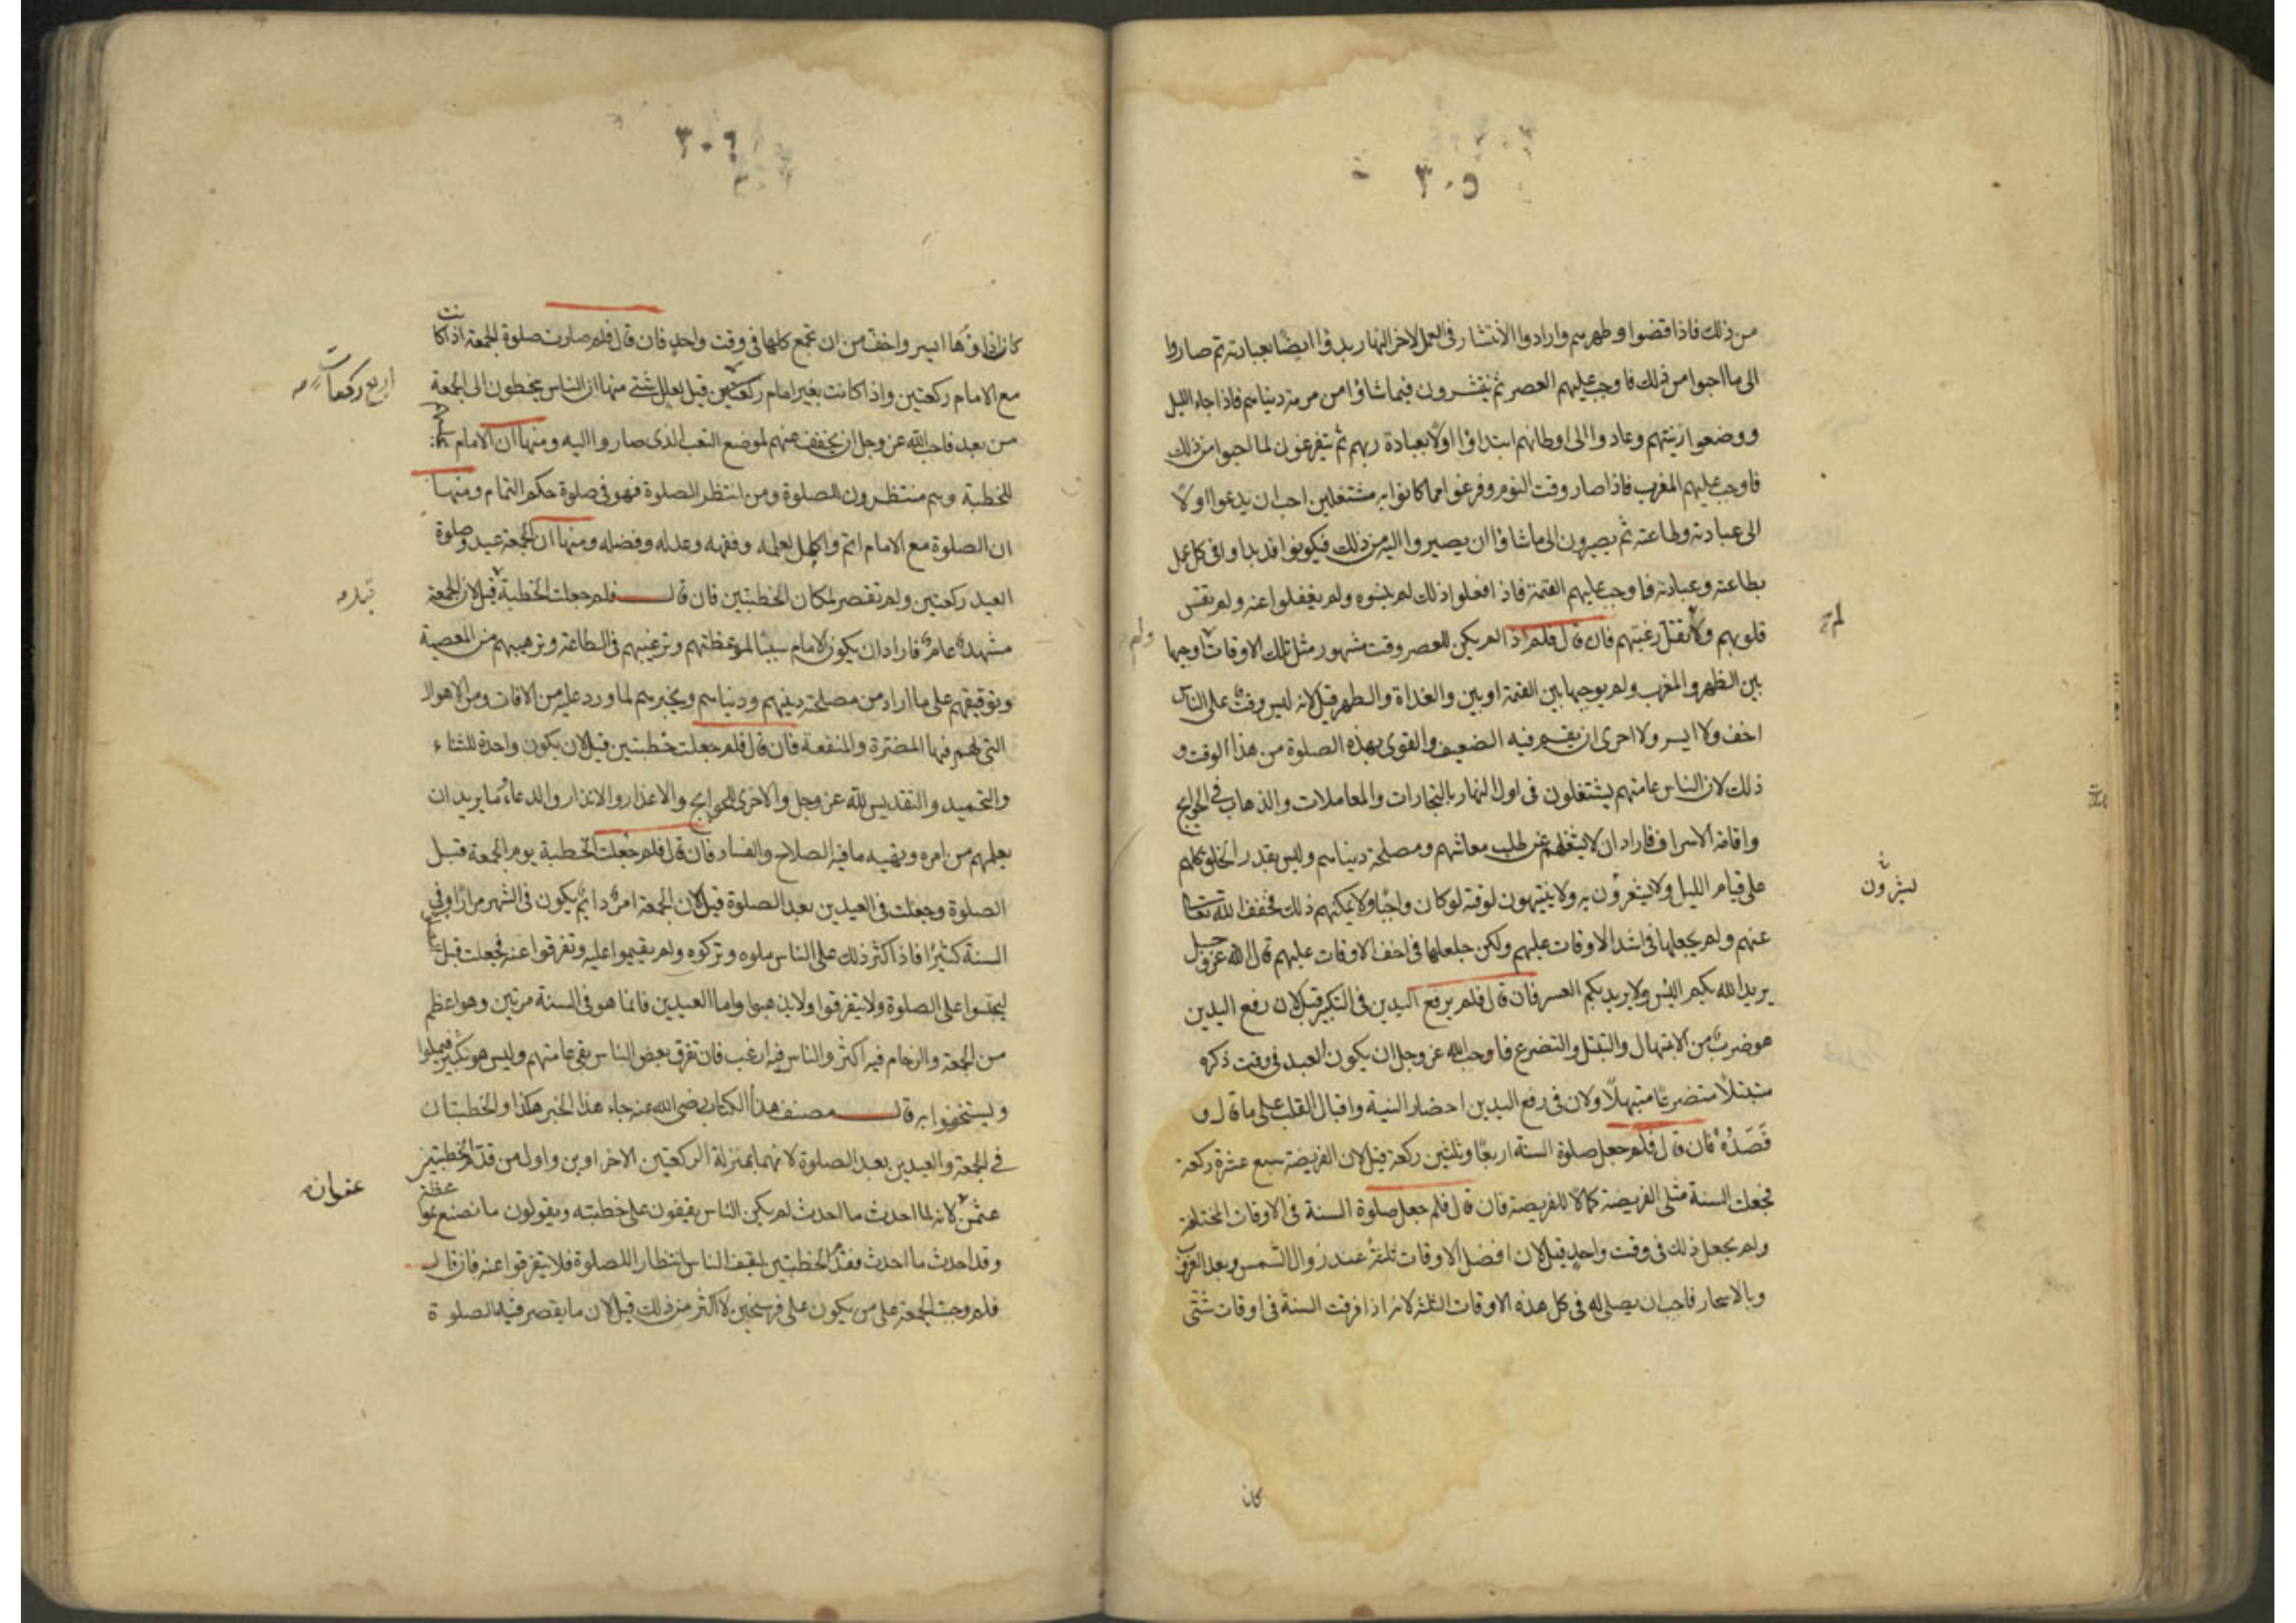 ٣٠٥
من ذلك فاذا قضوا وطهرهم وارادوا الانتشار فى العمل لاخر النهار بدؤا ايضًا بعبادته ثم صاروا
الى ما احبوا من ذلك فاوجب عليهم العصر ثم ينتشرون فيما شاؤا من مرمة دنياهم فاذا جاء الليل
ووضعوا زينتهم وعادوا الى اوطانهم ابتداؤا اولًا بعبادة ربهم ثم يتفرغون لما احبوا من ذلك
فاوجب عليهم المغرب فاذا صار وقت النوم وفرغوا مما كانوا به مشتغلين احب ان يدعوا اولًا
الى عبادته وطاعته ثم يصيرون الى ما شاؤا ان يصيروا اليه من ذلك فيكونوا قد بداوا فى كل عمل
بطاعته وعبادته فاوجب عليهم العتمة فاذا فعلوا ذلك لم ينسوه ولم يغفلوا عنه ولم تقس
قلوبهم ولا تقتل رغبتهم فان قال فلم اذا لم يكن للعصر وقت مشهور مثل تلك الاوقات اوجبها
بين الظهر والمغرب ولم يوجبها بين العتمة او بين والغداة والظهر قيل لانه ليس وقت على الناس
اخف ولا ايسر ولا احرى ان يقسم فيه الضعيف والقوى بهذه الصلوة من هذا الوقت و
ذلك لان الناس عامتهم يشتغلون فى اول النهار بالتجارات والمعاملات والذهاب فى الحوايج
واقامة الاسراف فاراد ان لا يشغلهم عن طلب معاشهم ومصلحة دنياهم وليس يقدر الخلق كلهم
على قيام الليل ولا يشعرون به ولا ينتبهون لوقته لو كان واجبًا ولا يمكنهم ذلك فخفف الله تعالى
عنهم ولم يجعلها فى اشد الاوقات عليهم ولكن جعلها فى اخف الاوقات عليهم قال الله عز و جل
يريد الله بكم اليسر ولا يريد بكم العسر فان قال فلم يرفع اليدين فى التكبير قيل لان رفع اليدين
هو ضرب من الابتهال والتبتل والتضرع فاوجب الله عز وجل ان يكون العبد فى وقت ذكره
متبتلًا متضرعًا مبتهلًا ولان فى رفع اليدين احضار النية واقبال القلب على ما قال و
قَصَدَهُ فان قال فلم جعل صلوة السنة اربعًا وثلثين ركعة قيل لان الفريضة سبع عشرة ركعة
فجعلت السنة مثلى الفريضة كمالًا للفريضة فان قال فلم جعل صلوة السنة فى الاوقات المختلفة
ولم يجعل ذلك فى وقت واحد قيل لان افضل الاوقات ثلثة عند زوال الشمس وبعد الغروب
وبالاسحار فاحب ان يصلى له فى كل هذه الاوقات الثلثة لانه اذا فرقت السنة فى اوقات شتى
كان
٣٠٦
كان اداؤها ايسر واخف من ان تجمع كلها فى وقت واحد فان قال فلم صارت صلوة الجمعة اذا كانت
مع الامام ركعتين واذا كانت بغير امام ركعتين قيل لعلل شتى منها ان الناس يتخطون الى الجمعة
اربع ركعات
من بعد فاحب الله عز وجل ان يخفف عنهم لموضع التعب الذى صاروا اليه ومنها ان الامام
للخطبة وهم منتظرون للصلوة ومن انتظر الصلوة فهو فى صلوة حكم التمام ومنها
ان الصلوة مع الامام اتم واكمل لعلمه وفقهه وعدله وفضله ومنها ان الجمعة عيد وصلوة
العيد ركعتين ولم تقصر لمكان الخطبتين فان قال فلم جعلت الخطبة قيل لان الجمعة
مشهد عام فاراد ان يكون الامام سببًا لموعظتهم وترغيبهم فى الطاعة وترهيبهم من المعصية
وتوقيفهم على ما اراد من مصلحة دينهم ودنياهم ويخبرهم لما ورد عليه من الافات ومن الاهوال
التى لهم فيها المضرة والمنفعة فان قال فلم جعلت خطبتين قيل لان يكون واحدة للثناء
والتحميد والتقديس لله عز وجل والاخرى للحوايج والاعذار والانذار والدعاء وما يريد ان
يعلمهم من امره ونهيه ما فيه الصلاح والفساد فان قال فلم جعلت الخطبة يوم الجمعة قبل
الصلوة وجعلت فى العيدين بعد الصلوة قيل لان الجمعة امر دائم يكون فى الشهر مرارًا وفى
السنة كثيرًا فاذا كثر ذلك على الناس ملوه وتركوه ولم يقيموا عليه وتفرقوا عنه فجعلت قبل
ليحتبسوا على الصلوة ولا يتفرقوا ولا يذهبوا واما العيدين فانما هو فى السنة مرتين وهو اعظم
من الجمعة والزحام فيه اكثر والناس فيه ارغب فان تفرق بعض الناس بقى عامتهم وليس هو بكثير فيملوا
ويستخفوا به قال مصنف هذا الكتاب رضى الله عنه جاء هذا الخبر هكذا والخطبتان
فى الجمعة والعيدين بعد الصلوة لانهما بمنزلة الركعتين الاخراوين واول من قدم الخطبتين
عثمن لانه لما احدث ما احدث لم يكن الناس يقفون على خطبته ويقولون ما نصنع بمواعظه
وقد احدث ما احدث فقدم الخطبتين ليقف الناس انتظارا للصلوة فلا يتفرقوا عنه فان قال
فلم وجبت الجمعة على من يكون على فرسخين لا اكثر من ذلك قيل لان ما يقصر فيه الصلوة